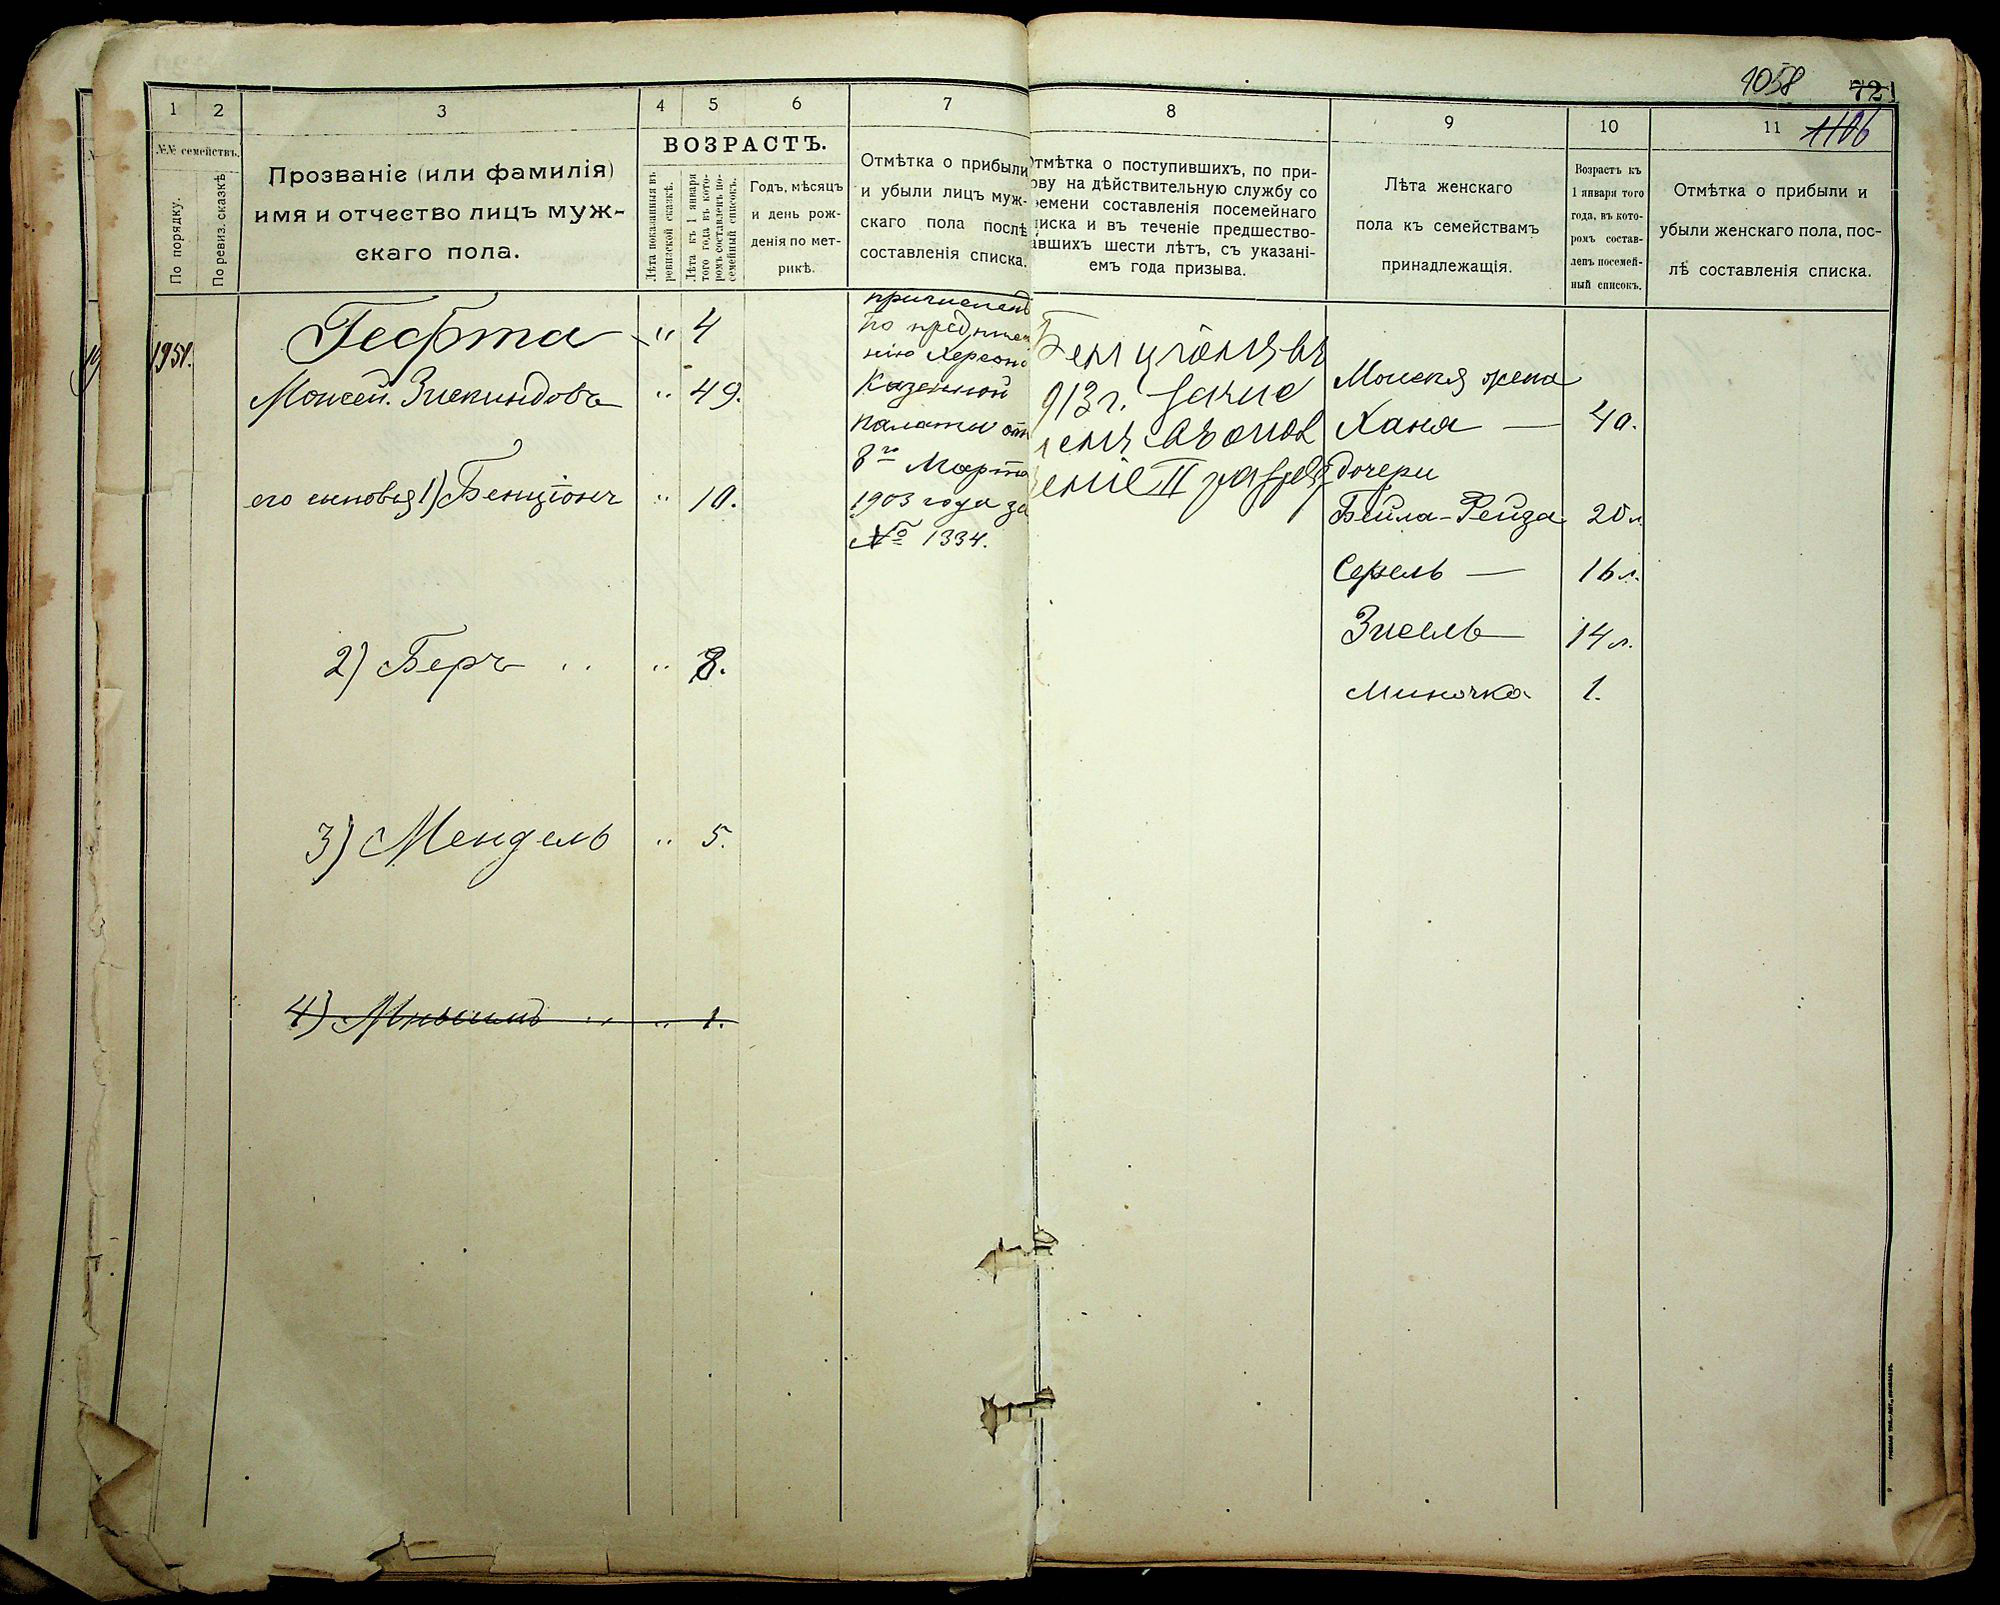 1058 72
1 2 3 4 5 6 7 8 9 10 11 1106
№№ семействъ.
По порядку.
По ревиз. сказкѣ
Прозваніе (или фамилія)
имя и отчество лицъ муж-
скаго пола.
ВОЗРАСТЪ.
Лѣта показанныя въ
ревизской сказкѣ.
Лѣта къ 1 января
того года въ кото-
ромъ составленъ по-
семейный списокъ.
Годъ, мѣсяцъ
и день рож-
денія по мет-
рикѣ.
Отмѣтка о прибыли
и убыли лицъ муж-
скаго пола послѣ
составленія списка.
Отмѣтка о поступившихъ, по при-
ову на дѣйствительную службу со
ремени составленія посемейнаго
писка и въ теченіе предшество-
авшихъ шести лѣтъ, съ указані-
емъ года призыва.
Лѣта женскаго
пола къ семействамъ
принадлежащія.
Возрастъ къ
1 января того
года, въ кото-
ромъ состав-
ленъ посемей-
ный списокъ.
Отмѣтка о прибыли и
убыли женскаго пола, пос-
лѣ составленія списка.
1951.
Гефта " 4
Моисей Зискиндовъ " 49.
его сыновья 1) Бенціонъ " 10.
2) Беръ " " 8.
3) Мендель " 5.
4) " " 1.
причисленъ
по
нію Херсонс
Казенной
Палаты отъ
8го Марта
1903 года за
№ 1334.
Бенціонъ въ
913г.
II
Моисея жена
Хана — 40.
дочери
Бейла-Рейза 20 л.
Серель — 16 л.
Зисель — 14 л.
Миночка 1.